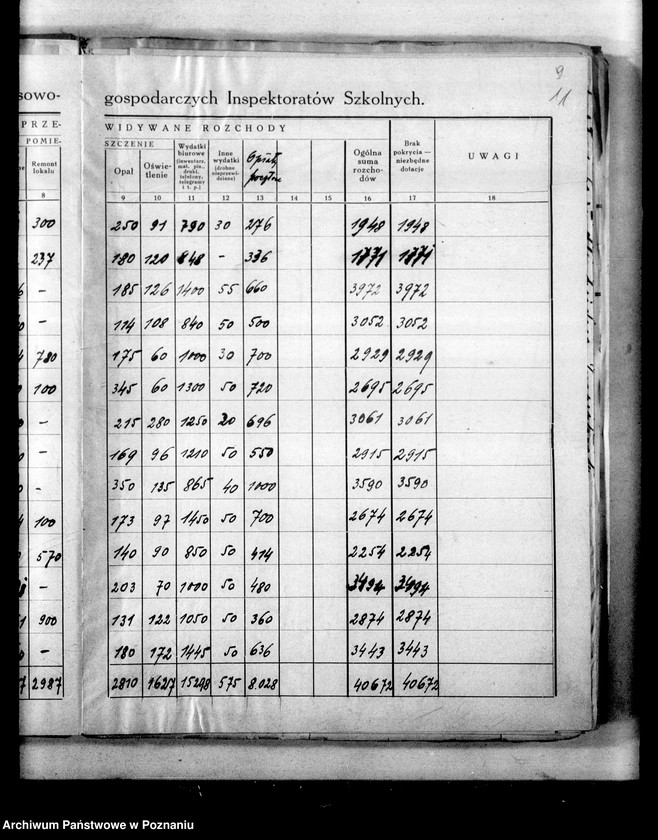 9
11
sowo-
gospodarczych Inspektoratów Szkolnych.
PRZE-
WIDYWANE ROZCHODY
POMIE-
SZCZENIE
Remont lokalu
Opał
Oświe-tlenie
Wydatki biurowe (inwentarz, mat. pis., druki, telefony, telegramy i t. p.)
Inne wydatki (drobne nieprzewi-dziane)
Opłaty pocztowe
Ogólna suma rozcho-dów
Brak pokrycia — niezbędne dotacje
UWAGI
8 9 10 11 12 13 14 15 16 17 18
300 250 91 790 30 276 1948 1948
237 180 120 848 - 336 1771 1771
- 185 126 1400 55 660 3972 3972
- 114 108 840 50 500 3052 3052
780 175 60 1000 30 700 2929 2929
100 345 60 1300 50 720 2695 2695
- 215 280 1250 20 696 3061 3061
- 169 96 1210 50 550 2915 2915
- 350 135 865 40 1000 3590 3590
100 173 97 1450 50 700 2674 2674
570 140 90 850 50 414 2254 2254
- 203 70 1000 50 480 3494 3494
900 131 122 1050 50 360 2874 2874
- 180 172 1445 50 636 3443 3443
2987 2810 1627 15298 575 8.028 40672 40672
Archiwum Państwowe w Poznaniu